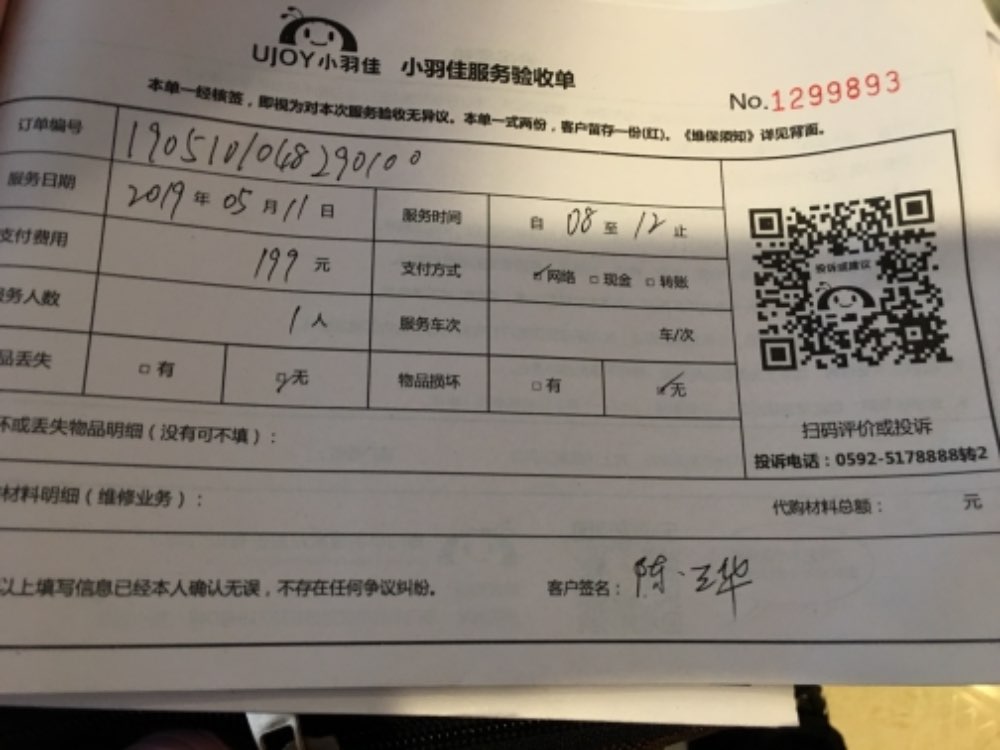 UJOY小羽佳 小羽佳服务验收单
No.1299893
本单一经核签，即视为对本次服务验收无异议。本单一式两份，客户留存一份(红)。《维保须知》详见背面。
订单编号 1905101048290100
服务日期 2019年05月11日 服务时间 自08至12止
支付费用 199元 支付方式 ☑网络 □现金 □转账
服务人数 1人 服务车次 车/次
品丢失 □有 ☑无 物品损坏 □有 ☑无
投诉或建议
扫码评价或投诉
投诉电话：0592-5178888转2
坏或丢失物品明细（没有可不填）：
材料明细（维修业务）： 代购材料总额： 元
以上填写信息已经本人确认无误，不存在任何争议纠纷。 客户签名：陈